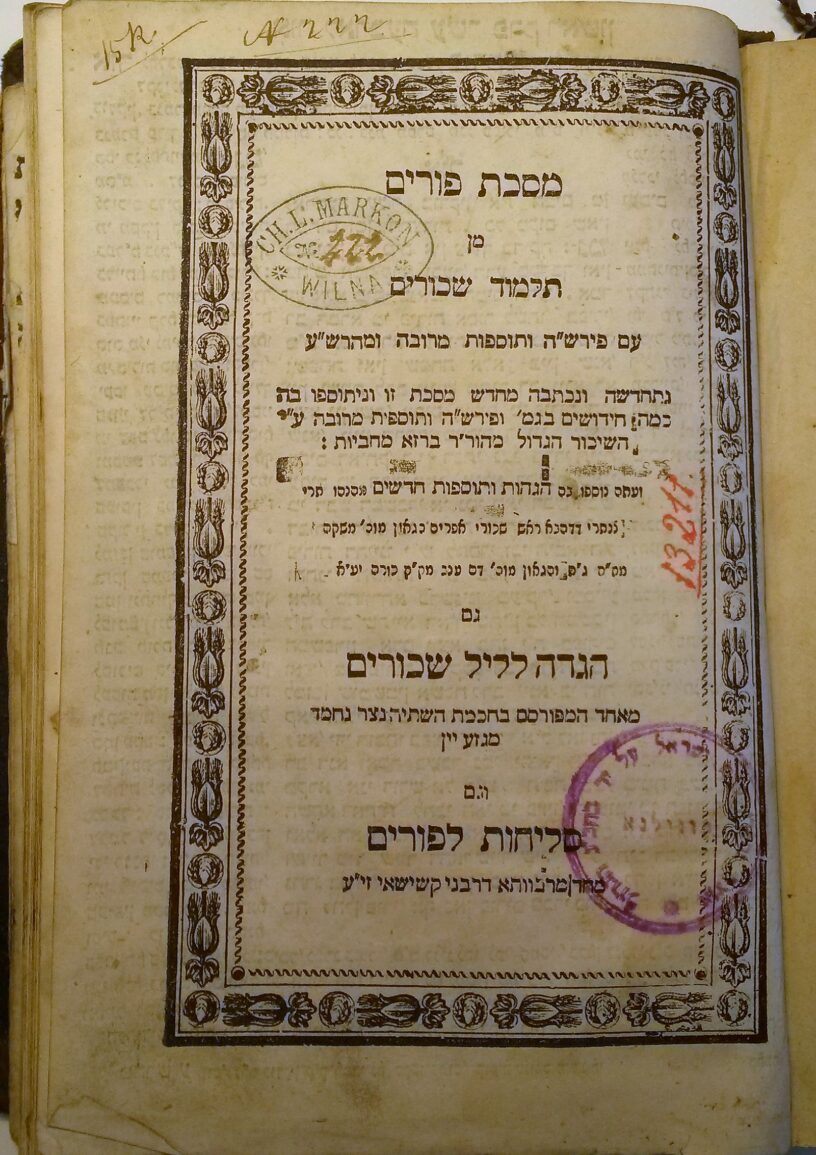 15k
N 222
מסכת פורים
CH. L. MARKON
№ 422
WILNA
מן
תלמוד שכורים
עם פירש"ה ותוספות מרובה ומהרש"ע
נתחדשה ונכתבה מחדש מסכת זו וניתוספו בה
כמה חידושים בגמ' ופירש"ה ותוספות מרובה ע"י
השיכור הגדול מהור'ר ברזא מחביות :
ועתה נוספו גם הגהות ותוספות חדשים
ראש שכורי אפרים הגאון מוה' משקה
והגאון מוה' דם ענב מק"ק כורם יע"א
13211
גם
הגדה לליל שכורים
מאחד המפורסם בחכמת השתיה נצר נחמד
מגזע יין
וגם
סליחות לפורים
מחד מרבוותא דרבני קשישאי זי"ע
ווילנא